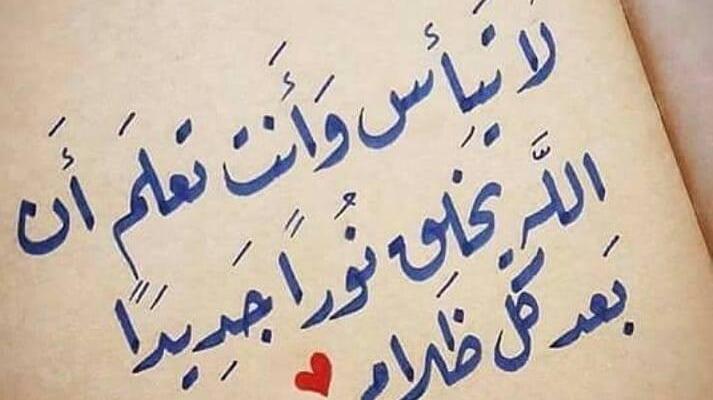 لَا تَيَأس وَأَنت تعلَم أَن
اللَّه يخَلق نُوراً جَدِيدًا
بَعد كلّ ظَلام